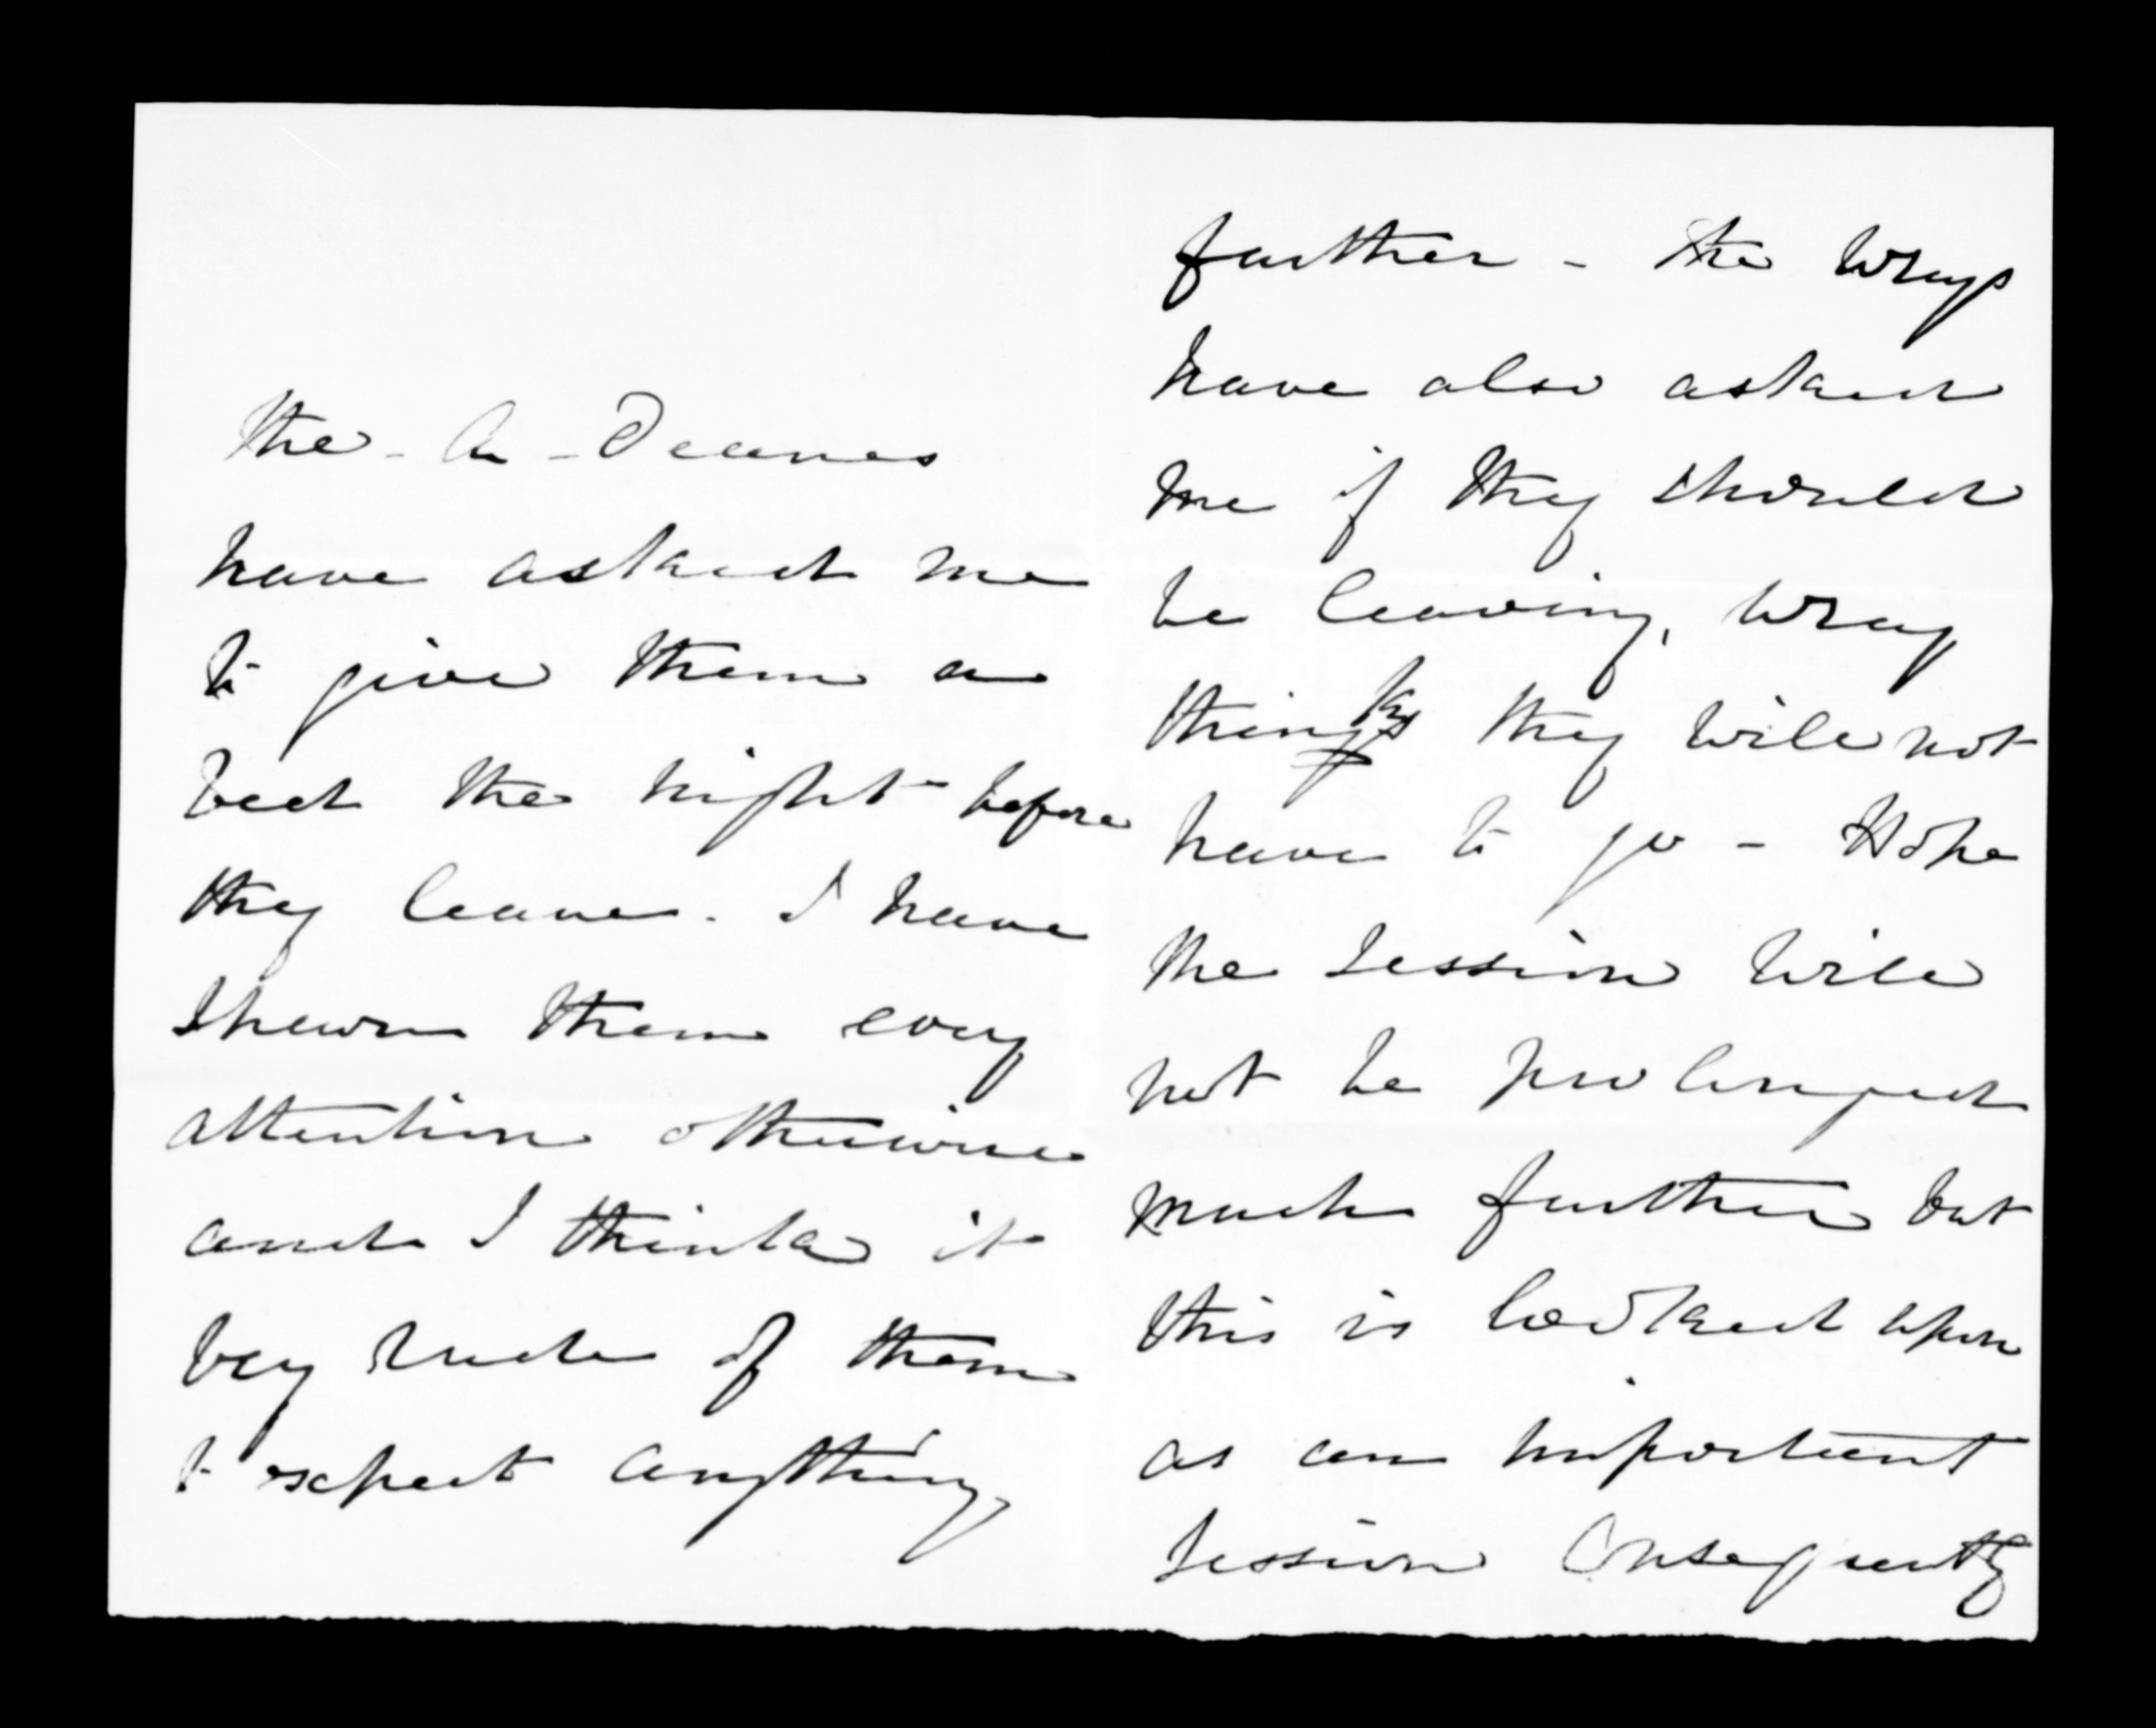 The - A - Deanes
have asked me
to give them a
bed the night before
they leave. I have
shewn them every
attention otherwise
and I think it
very rude of them
to expect anything
further - The Wrays
have also asked
me if they should
be leaving, Wray
thinks they will not
have to go - Hope
the Session will
not be prolonged
much further but
this is looked upon
as an important
Session Consequently